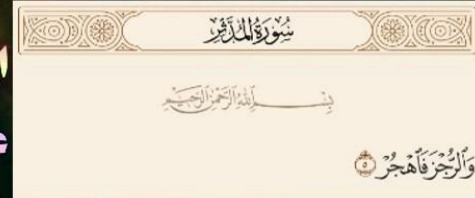 سُورَةُ المُدَّثِّرِ
بِسْمِ ٱللَّهِ ٱلرَّحْمَٰنِ ٱلرَّحِيمِ
وَٱلرُّجْزَ فَٱهْجُرْ ٥